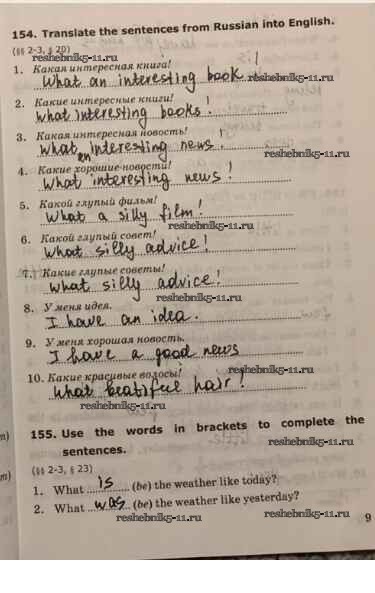 154. Translate the sentences from Russian into English.
(§§ 2-3, § 20)
reshebnik5-11.ru
1. Какая интересная книга!
What an interesting book! reshebnik5-11.ru
2. Какие интересные книги!
What interesting books!
3. Какая интересная новость!
What an interesting news! reshebnik5-11.ru
4. Какие хорошие новости!
What interesting news!
5. Какой глупый фильм!
What a silly film!
reshebnik5-11.ru
6. Какой глупый совет!
What silly advice!
7. Какие глупые советы!
What silly advice!
reshebnik5-11.ru
8. У меня идея.
I have an idea.
9. У меня хорошая новость.
I have a good news
reshebnik5-11.ru
10. Какие красивые волосы!
What beatifeel hair!
reshebnik5-11.ru
155. Use the words in brackets to complete the
sentences.
reshebnik5-11.ru
(§§ 2-3, § 23)
1. What is (be) the weather like today?
2. What was (be) the weather like yesterday?
reshebnik5-11.ru reshebnik5-11.ru
9